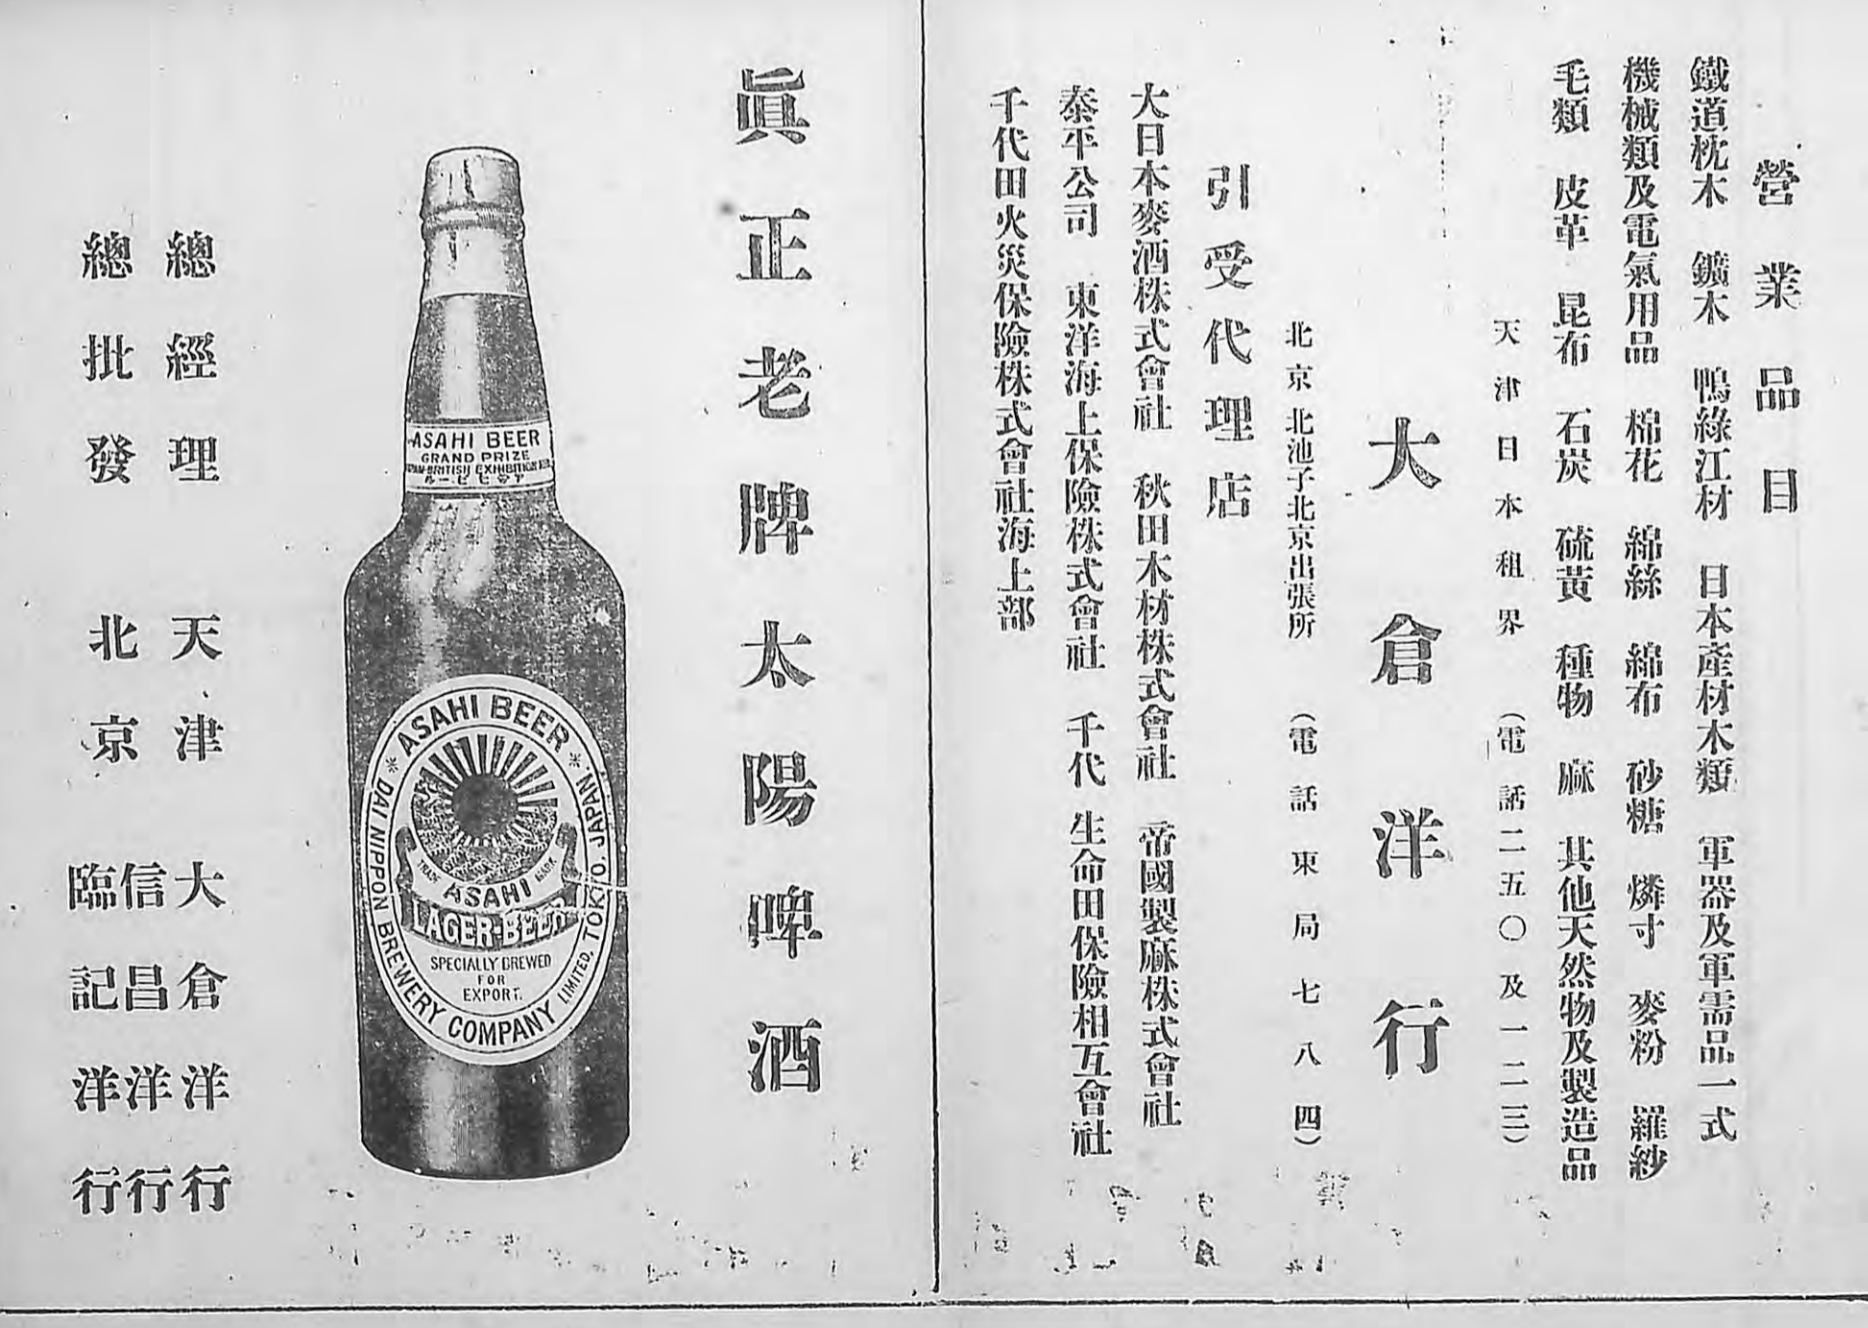 營業品目
鐵道枕木　鑛木　鴨綠江材　日本產材木類　軍器及軍需品一式
機械類及電氣用品　棉花　綿絲　綿布　砂糖　燐寸　麥粉　羅紗
毛類　皮革　昆布　石炭　硫黃　種物　麻　其他天然物及製造品
天津日本租界（電話二五〇及一二三）
大倉洋行
北京北池子北京出張所（電話東局七八四）
引受代理店
大日本麥酒株式會社　秋田木材株式會社　帝國製麻株式會社
泰平公司　東洋海上保險株式會社　千代田生命保險相互會社
千代田火災保險株式會社海上部
眞正老牌太陽啤酒
ASAHI BEER
GRAND PRIZE
BRITISH EXHIBITION
ルービヒサア
ASAHI BEER
DAI NIPPON BREWERY COMPANY LIMITED, TOKIO. JAPAN.
TRADE MARK
ASAHI
LAGER-BEER
SPECIALLY BREWED
FOR
EXPORT.
總經理　天津　大倉洋行
總批發　北京　信昌洋行
臨記洋行